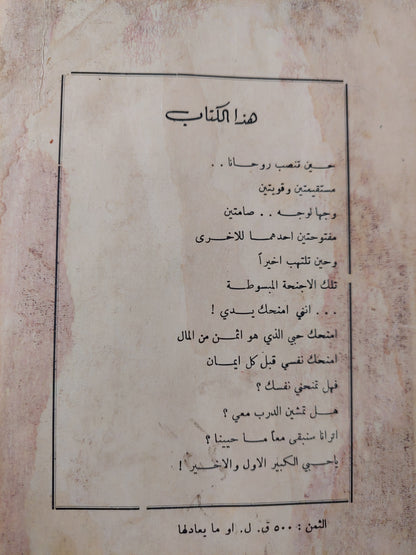 هذا الكتاب
حين تنصب روحانا . .
مستقيمتين وقويتين
وجها لوجه . . صامتتين
مفتوحتين احدهما للاخرى
وحين تلتهب اخيراً
تلك الاجنحة المبسوطة
. . . انني امنحك يدي !
امنحك حبي الذي هو اثمن من المال
امنحك نفسي قبل كل ايمان
فهل تمنحني نفسك ؟
هل تمشين الدرب معي ؟
اترانا سنبقى معاً ما حيينا ؟
ياحبي الكبير الاول والاخير !
الثمن : ٥٠٠ ق. ل. او ما يعادلها